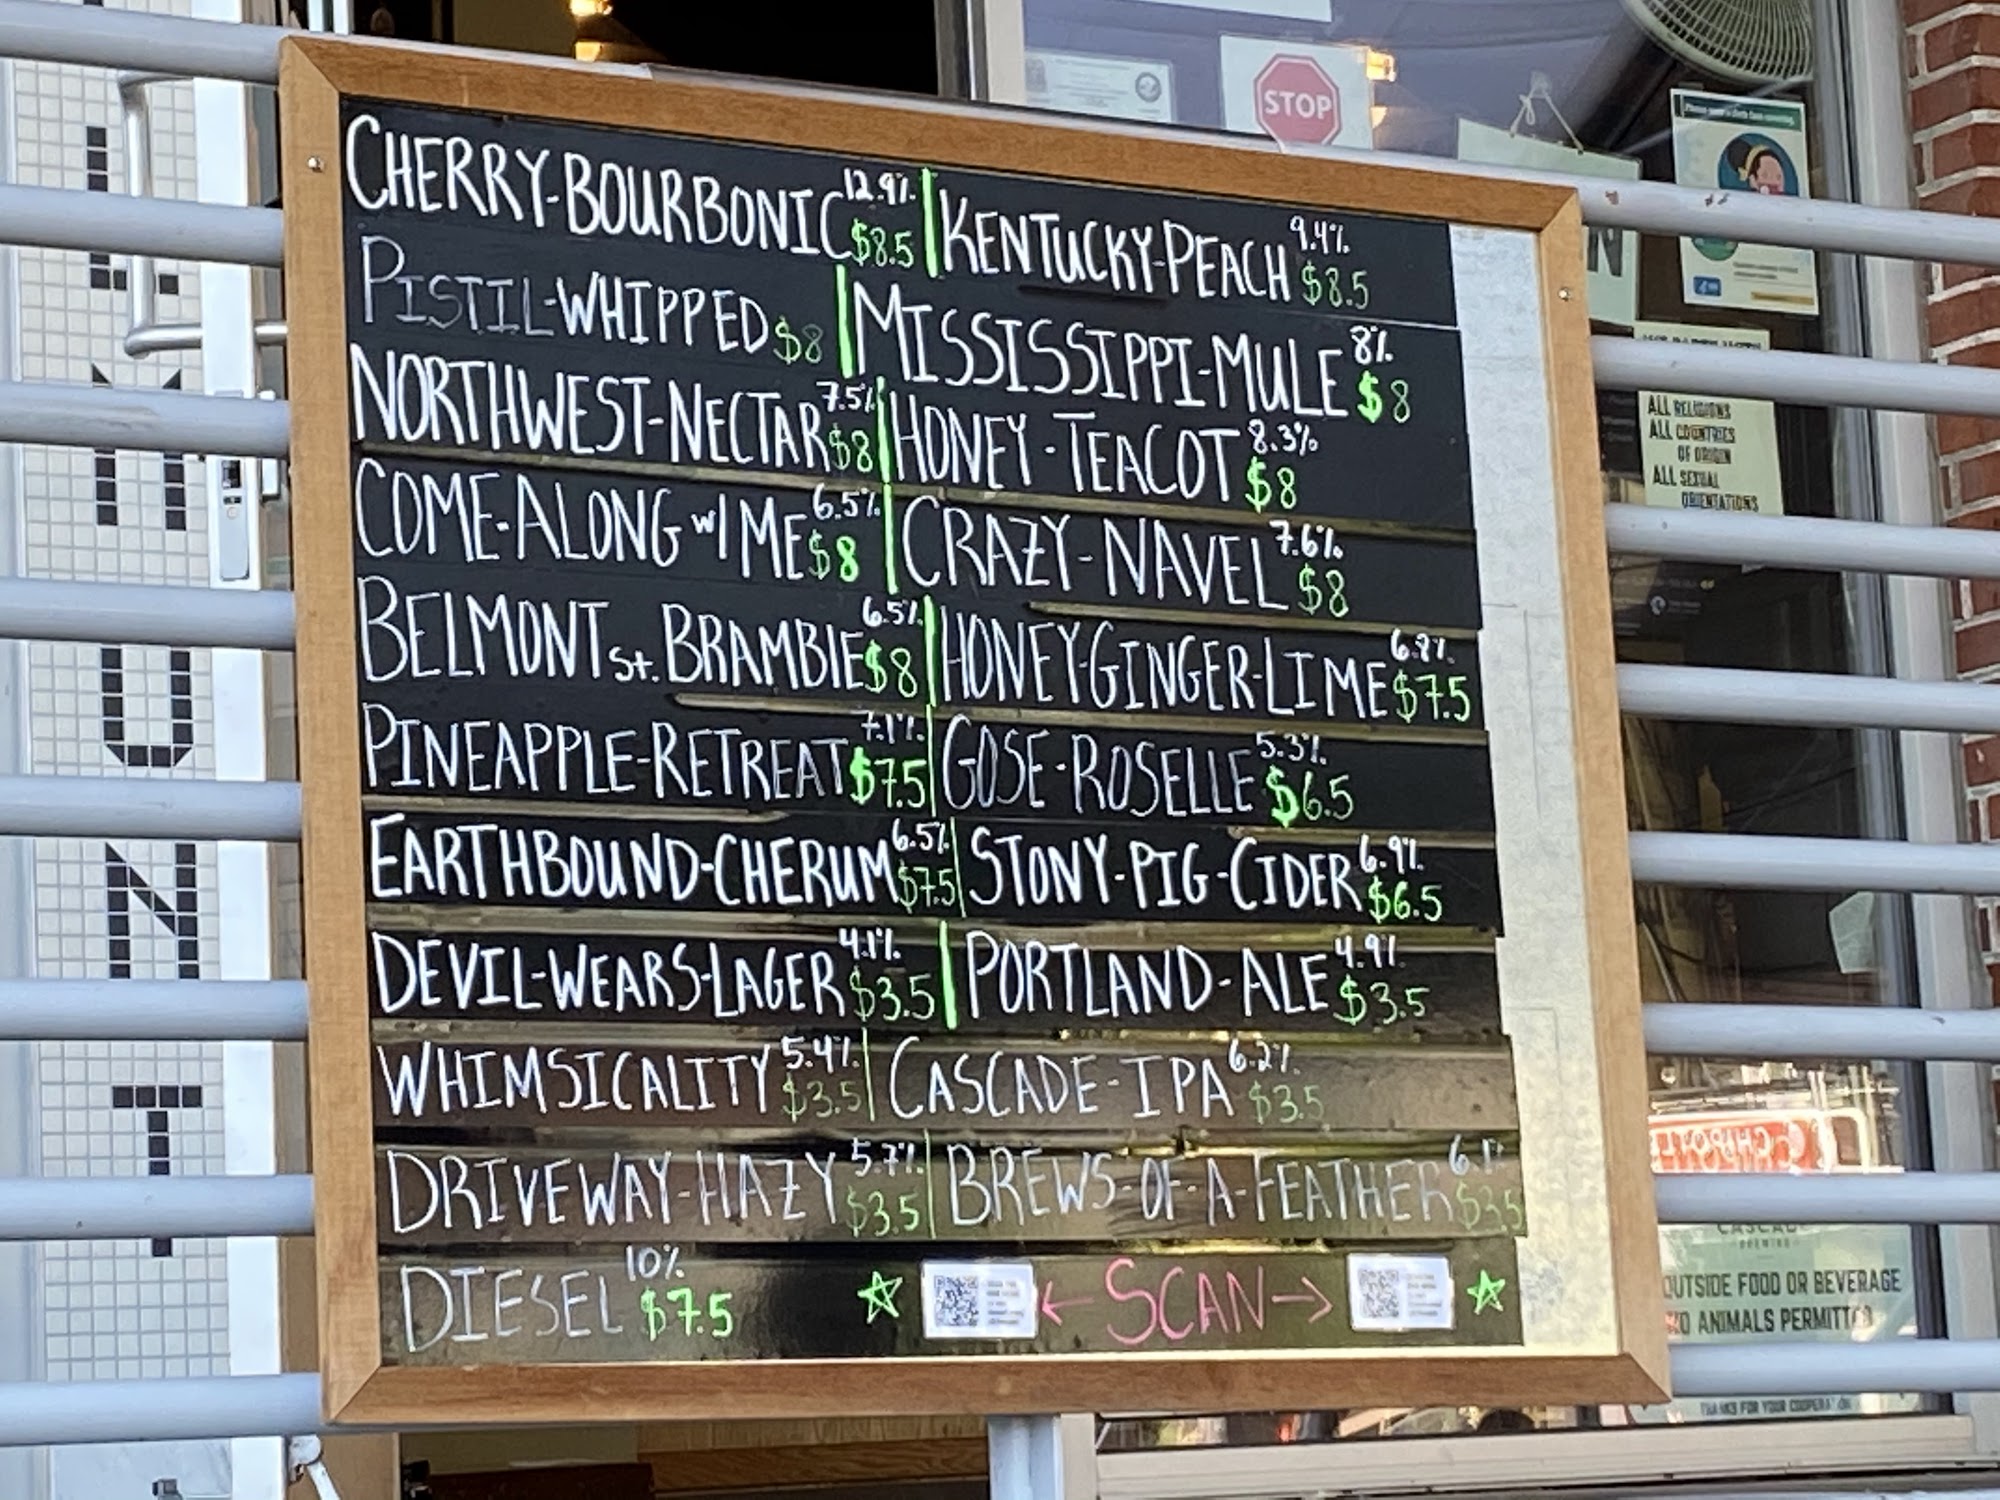 CHERRY-BOURBONIC 12.9% $8.5 | KENTUCKY-PEACH 9.4% $8.5
PISTIL-WHIPPED $8 | MISSISSIPPI-MULE 8% $8
NORTHWEST-NECTAR 7.5% $8 | HONEY-TEACOT 8.3% $8
COME-ALONG w/ ME 6.5% $8 | CRAZY-NAVEL 7.6% $8
BELMONT St. BRAMBlE 6.5% $8 | HONEY-GINGER-LIME $7.5
PINEAPPLE-RETREAT 7.1% $7.5 | GOSE-ROSELLE 5.3% $6.5
EARTHBOUND-CHERUM 6.5% $7.5 | STONY-PIG-CIDER 6.9% $6.5
DEVIL-WEARS-LAGER 4.1% $3.5 | PORTLAND-ALE 4.9% $3.5
WHIMSICALITY 5.4% $3.5 | CASCADE-IPA 6.2% $3.5
DRIVEWAY-HAZY 5.7% $3.5 | BREWS-OF-A-FEATHER 6.1% $3.5
DIESEL 10% $7.5 ← SCAN →
STOP
ALL RELIGIONS
ALL COUNTRIES
OF ORIGIN
ALL SEXUAL
ORIENTATIONS
OUTSIDE FOOD OR BEVERAGE
NO ANIMALS PERMITTED
THANKS FOR YOUR COOPERATION